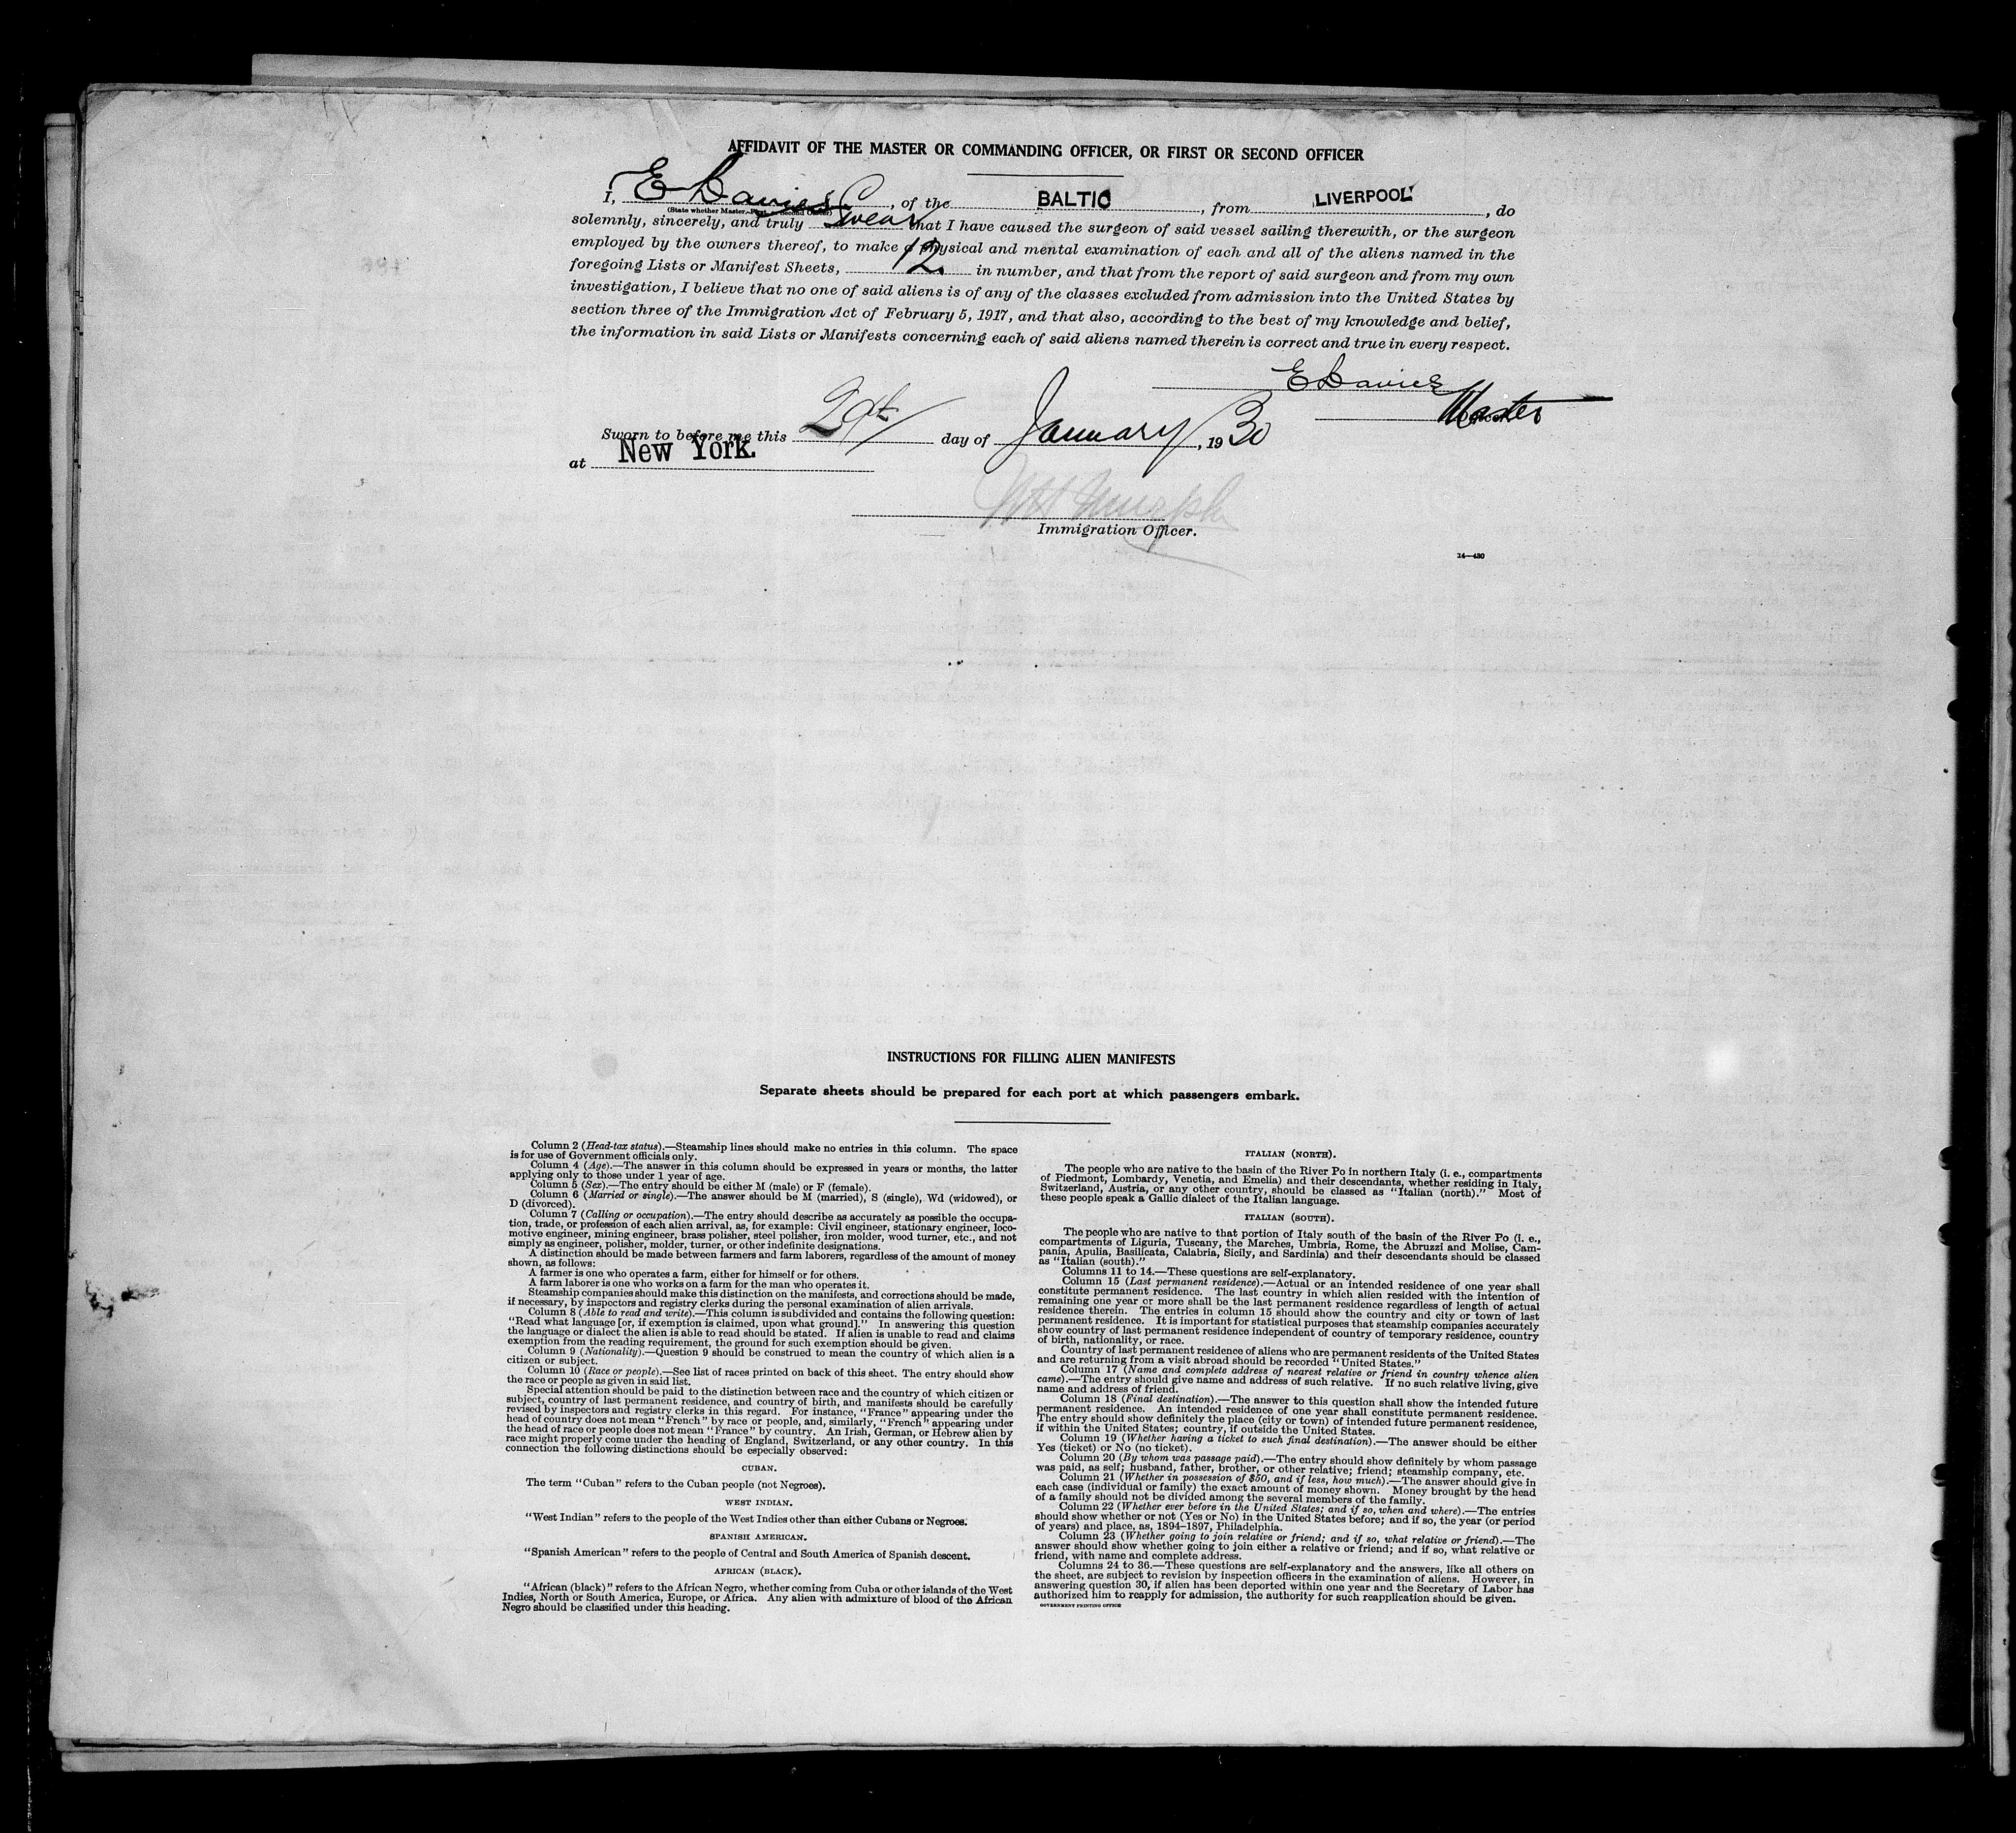 AFFIDAVIT OF THE MASTER OR COMMANDING OFFICER, OR FIRST OR SECOND OFFICER
I, E Davies, of the BALTIC, from LIVERPOOL, do
(State whether Master, First, or Second Officer)
solemnly, sincerely, and truly Swear that I have caused the surgeon of said vessel sailing therewith, or the surgeon
employed by the owners thereof, to make a physical and mental examination of each and all of the aliens named in the
foregoing Lists or Manifest Sheets, 12 in number, and that from the report of said surgeon and from my own
investigation, I believe that no one of said aliens is of any of the classes excluded from admission into the United States by
section three of the Immigration Act of February 5, 1917, and that also, according to the best of my knowledge and belief,
the information in said Lists or Manifests concerning each of said aliens named therein is correct and true in every respect.
E Davies
Master
Sworn to before me this day of January, 1930
at New York.
Immigration Officer.
14—430
INSTRUCTIONS FOR FILLING ALIEN MANIFESTS
Separate sheets should be prepared for each port at which passengers embark.
Column 2 (Head-tax status).—Steamship lines should make no entries in this column. The space
is for use of Government officials only.
Column 4 (Age).—The answer in this column should be expressed in years or months, the latter
applying only to those under 1 year of age.
Column 5 (Sex).—The entry should be either M (male) or F (female).
Column 6 (Married or single).—The answer should be M (married), S (single), Wd (widowed), or
D (divorced).
Column 7 (Calling or occupation).—The entry should describe as accurately as possible the occupa-
tion, trade, or profession of each alien arrival, as, for example: Civil engineer, stationary engineer, loco-
motive engineer, mining engineer, brass polisher, steel polisher, iron molder, wood turner, etc., and not
simply as engineer, polisher, molder, turner, or other indefinite designations.
A distinction should be made between farmers and farm laborers, regardless of the amount of money
shown, as follows:
A farmer is one who operates a farm, either for himself or for others.
A farm laborer is one who works on a farm for the man who operates it.
Steamship companies should make this distinction on the manifests, and corrections should be made,
if necessary, by inspectors and registry clerks during the personal examination of alien arrivals.
Column 8 (Able to read and write).—This column is subdivided and contains the following question:
"Read what language [or, if exemption is claimed, upon what ground]." In answering this question
the language or dialect the alien is able to read should be stated. If alien is unable to read and claims
exemption from the reading requirement, the ground for such exemption should be given.
Column 9 (Nationality).—Question 9 should be construed to mean the country of which alien is a
citizen or subject.
Column 10 (Race or people).—See list of races printed on back of this sheet. The entry should show
the race or people as given in said list.
Special attention should be paid to the distinction between race and the country of which citizen or
subject, country of last permanent residence, and country of birth, and manifests should be carefully
revised by inspectors and registry clerks in this regard. For instance, "France" appearing under the
head of country does not mean "French" by race or people, and, similarly, "French" appearing under
the head of race or people does not mean "France" by country. An Irish, German, or Hebrew alien by
race might properly come under the heading of England, Switzerland, or any other country. In this
connection the following distinctions should be especially observed:
CUBAN.
The term "Cuban" refers to the Cuban people (not Negroes).
WEST INDIAN.
"West Indian" refers to the people of the West Indies other than either Cubans or Negroes.
SPANISH AMERICAN.
"Spanish American" refers to the people of Central and South America of Spanish descent.
AFRICAN (BLACK).
"African (black)" refers to the African Negro, whether coming from Cuba or other islands of the West
Indies, North or South America, Europe, or Africa. Any alien with admixture of blood of the African
Negro should be classified under this heading.
ITALIAN (NORTH).
The people who are native to the basin of the River Po in northern Italy (i. e., compartments
of Piedmont, Lombardy, Venetia, and Emelia) and their descendants, whether residing in Italy,
Switzerland, Austria, or any other country, should be classed as "Italian (north)." Most of
these people speak a Gallic dialect of the Italian language.
ITALIAN (SOUTH).
The people who are native to that portion of Italy south of the basin of the River Po (i. e.,
compartments of Liguria, Tuscany, the Marches, Umbria, Rome, the Abruzzi and Molise, Cam-
pania, Apulia, Basilicata, Calabria, Sicily, and Sardinia) and their descendants should be classed
as "Italian (south)."
Columns 11 to 14.—These questions are self-explanatory.
Column 15 (Last permanent residence).—Actual or an intended residence of one year shall
constitute permanent residence. The last country in which alien resided with the intention of
remaining one year or more shall be the last permanent residence regardless of length of actual
residence therein. The entries in column 15 should show the country and city or town of last
permanent residence. It is important for statistical purposes that steamship companies accurately
show country of last permanent residence independent of country of temporary residence, country
of birth, nationality, or race.
Country of last permanent residence of aliens who are permanent residents of the United States
and are returning from a visit abroad should be recorded "United States."
Column 17 (Name and complete address of nearest relative or friend in country whence alien
came).—The entry should give name and address of such relative. If no such relative living, give
name and address of friend.
Column 18 (Final destination).—The answer to this question shall show the intended future
permanent residence. An intended residence of one year shall constitute permanent residence.
The entry should show definitely the place (city or town) of intended future permanent residence,
if within the United States; country, if outside the United States.
Column 19 (Whether having a ticket to such final destination).—The answer should be either
Yes (ticket) or No (no ticket).
Column 20 (By whom was passage paid).—The entry should show definitely by whom passage
was paid, as self; husband, father, brother, or other relative; friend; steamship company, etc.
Column 21 (Whether in possession of $50, and if less, how much).—The answer should give in
each case (individual or family) the exact amount of money shown. Money brought by the head
of a family should not be divided among the several members of the family.
Column 22 (Whether ever before in the United States; and if so, when and where).—The entries
should show whether or not (Yes or No) in the United States before; and if so, the year (or period
of years) and place, as, 1894–1897, Philadelphia.
Column 23 (Whether going to join relative or friend; and if so, what relative or friend).—The
answer should show whether going to join either a relative or friend; and if so, what relative or
friend, with name and complete address.
Columns 24 to 36.—These questions are self-explanatory and the answers, like all others on
the sheet, are subject to revision by inspection officers in the examination of aliens. However, in
answering question 30, if alien has been deported within one year and the Secretary of Labor has
authorized him to reapply for admission, the authority for such reapplication should be given.
GOVERNMENT PRINTING OFFICE